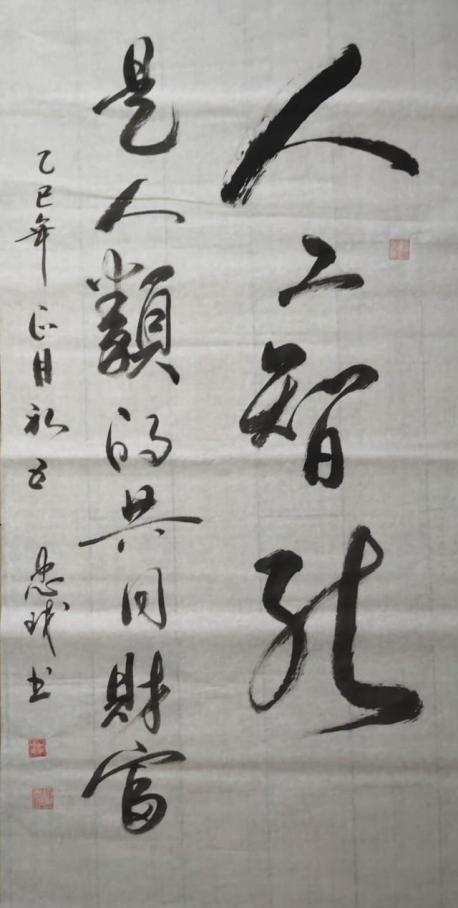 人工智能
是人類的共同財富
乙巳年正月初五 忠球书